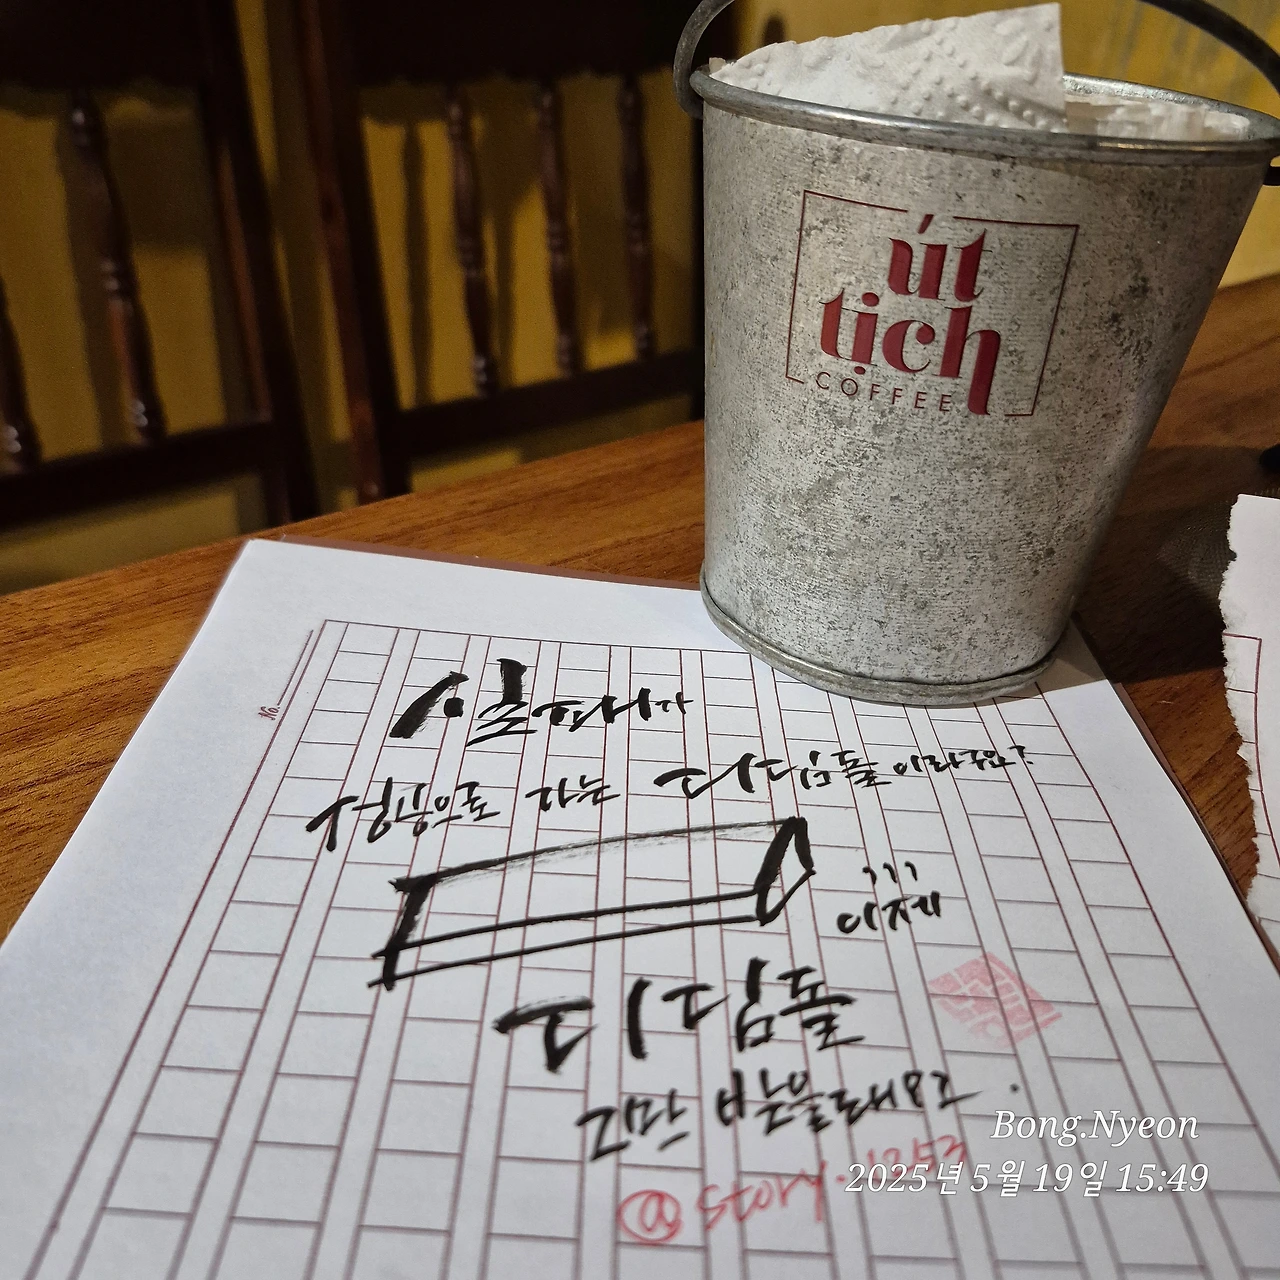 út
tịch
COFFEE
No.
실패가
성공으로 가는 디딤돌이라구요?
디딤돌
@story.1253
Bong.Nyeon
2025년 5월 19일 15:49